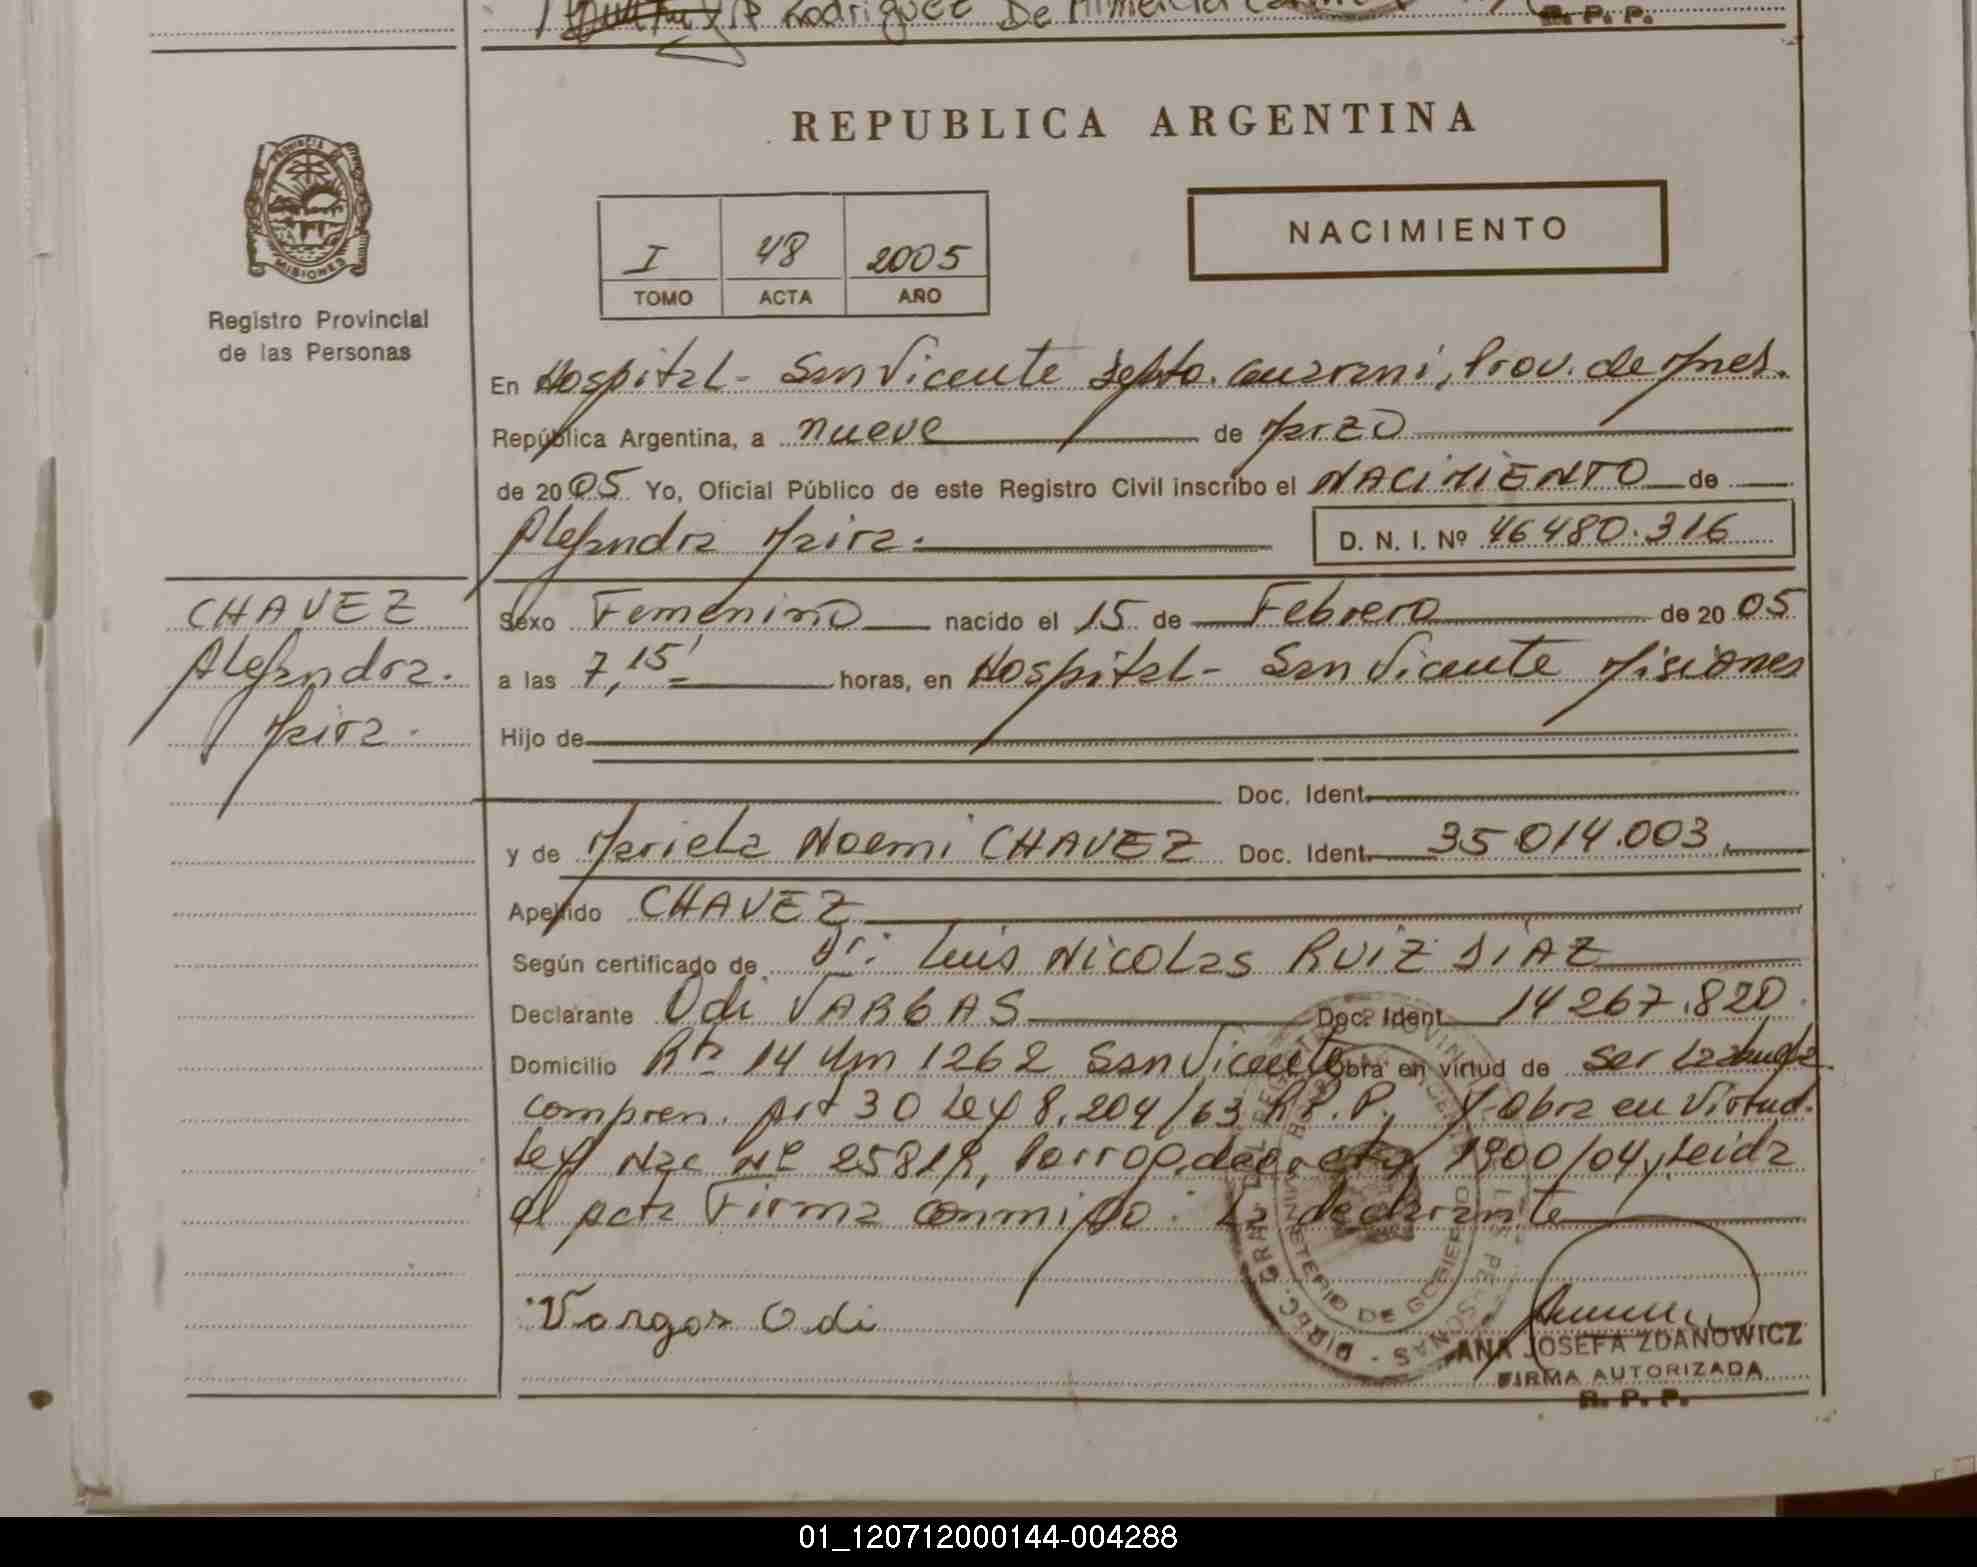 Rodriguez De Almeida
R. P. P.
REPUBLICA ARGENTINA
PROVINCIA DE
MISIONES
Registro Provincial
de las Personas
I 48 2005
TOMO ACTA AÑO
NACIMIENTO
En Hospital - San Vicente Depto. Guarani, Prov. de Mnes.
República Argentina, a nueve de Marzo
de 2005 Yo, Oficial Público de este Registro Civil inscribo el NACIMIENTO de
Alejandra Maira.
D. N. I. Nº 46480.316
CHAVEZ
Alejandra.
Maira.
Sexo Femenino nacido el 15 de Febrero de 2005
a las 7,15' horas, en Hospital - San Vicente Misiones
Hijo de
Doc. Ident.
y de Mariela Noemi CHAVEZ Doc. Ident. 35.014.003.
Apellido CHAVEZ
Según certificado de Dr. Luis Nicolas RUIZ DIAZ
Declarante Odi VARGAS Doc. Ident. 14267.820.
Domicilio Rta 14 Km 1262 San Vicente Obra en virtud de Ser la abuela
compren. Art 30 Ley 8.204/63 R.P.P., y Obra en Virtud.
Ley Nac Nº 25819, Porrog. decreto 1900/04, Leida
el acta Firma conmigo: La declarante
Vargas Odi
DIREC. GRAL.
MINISTERIO DE GOBIERNO
ANA JOSEFA ZDANOWICZ
FIRMA AUTORIZADA
R. P. P.
01_120712000144-004288